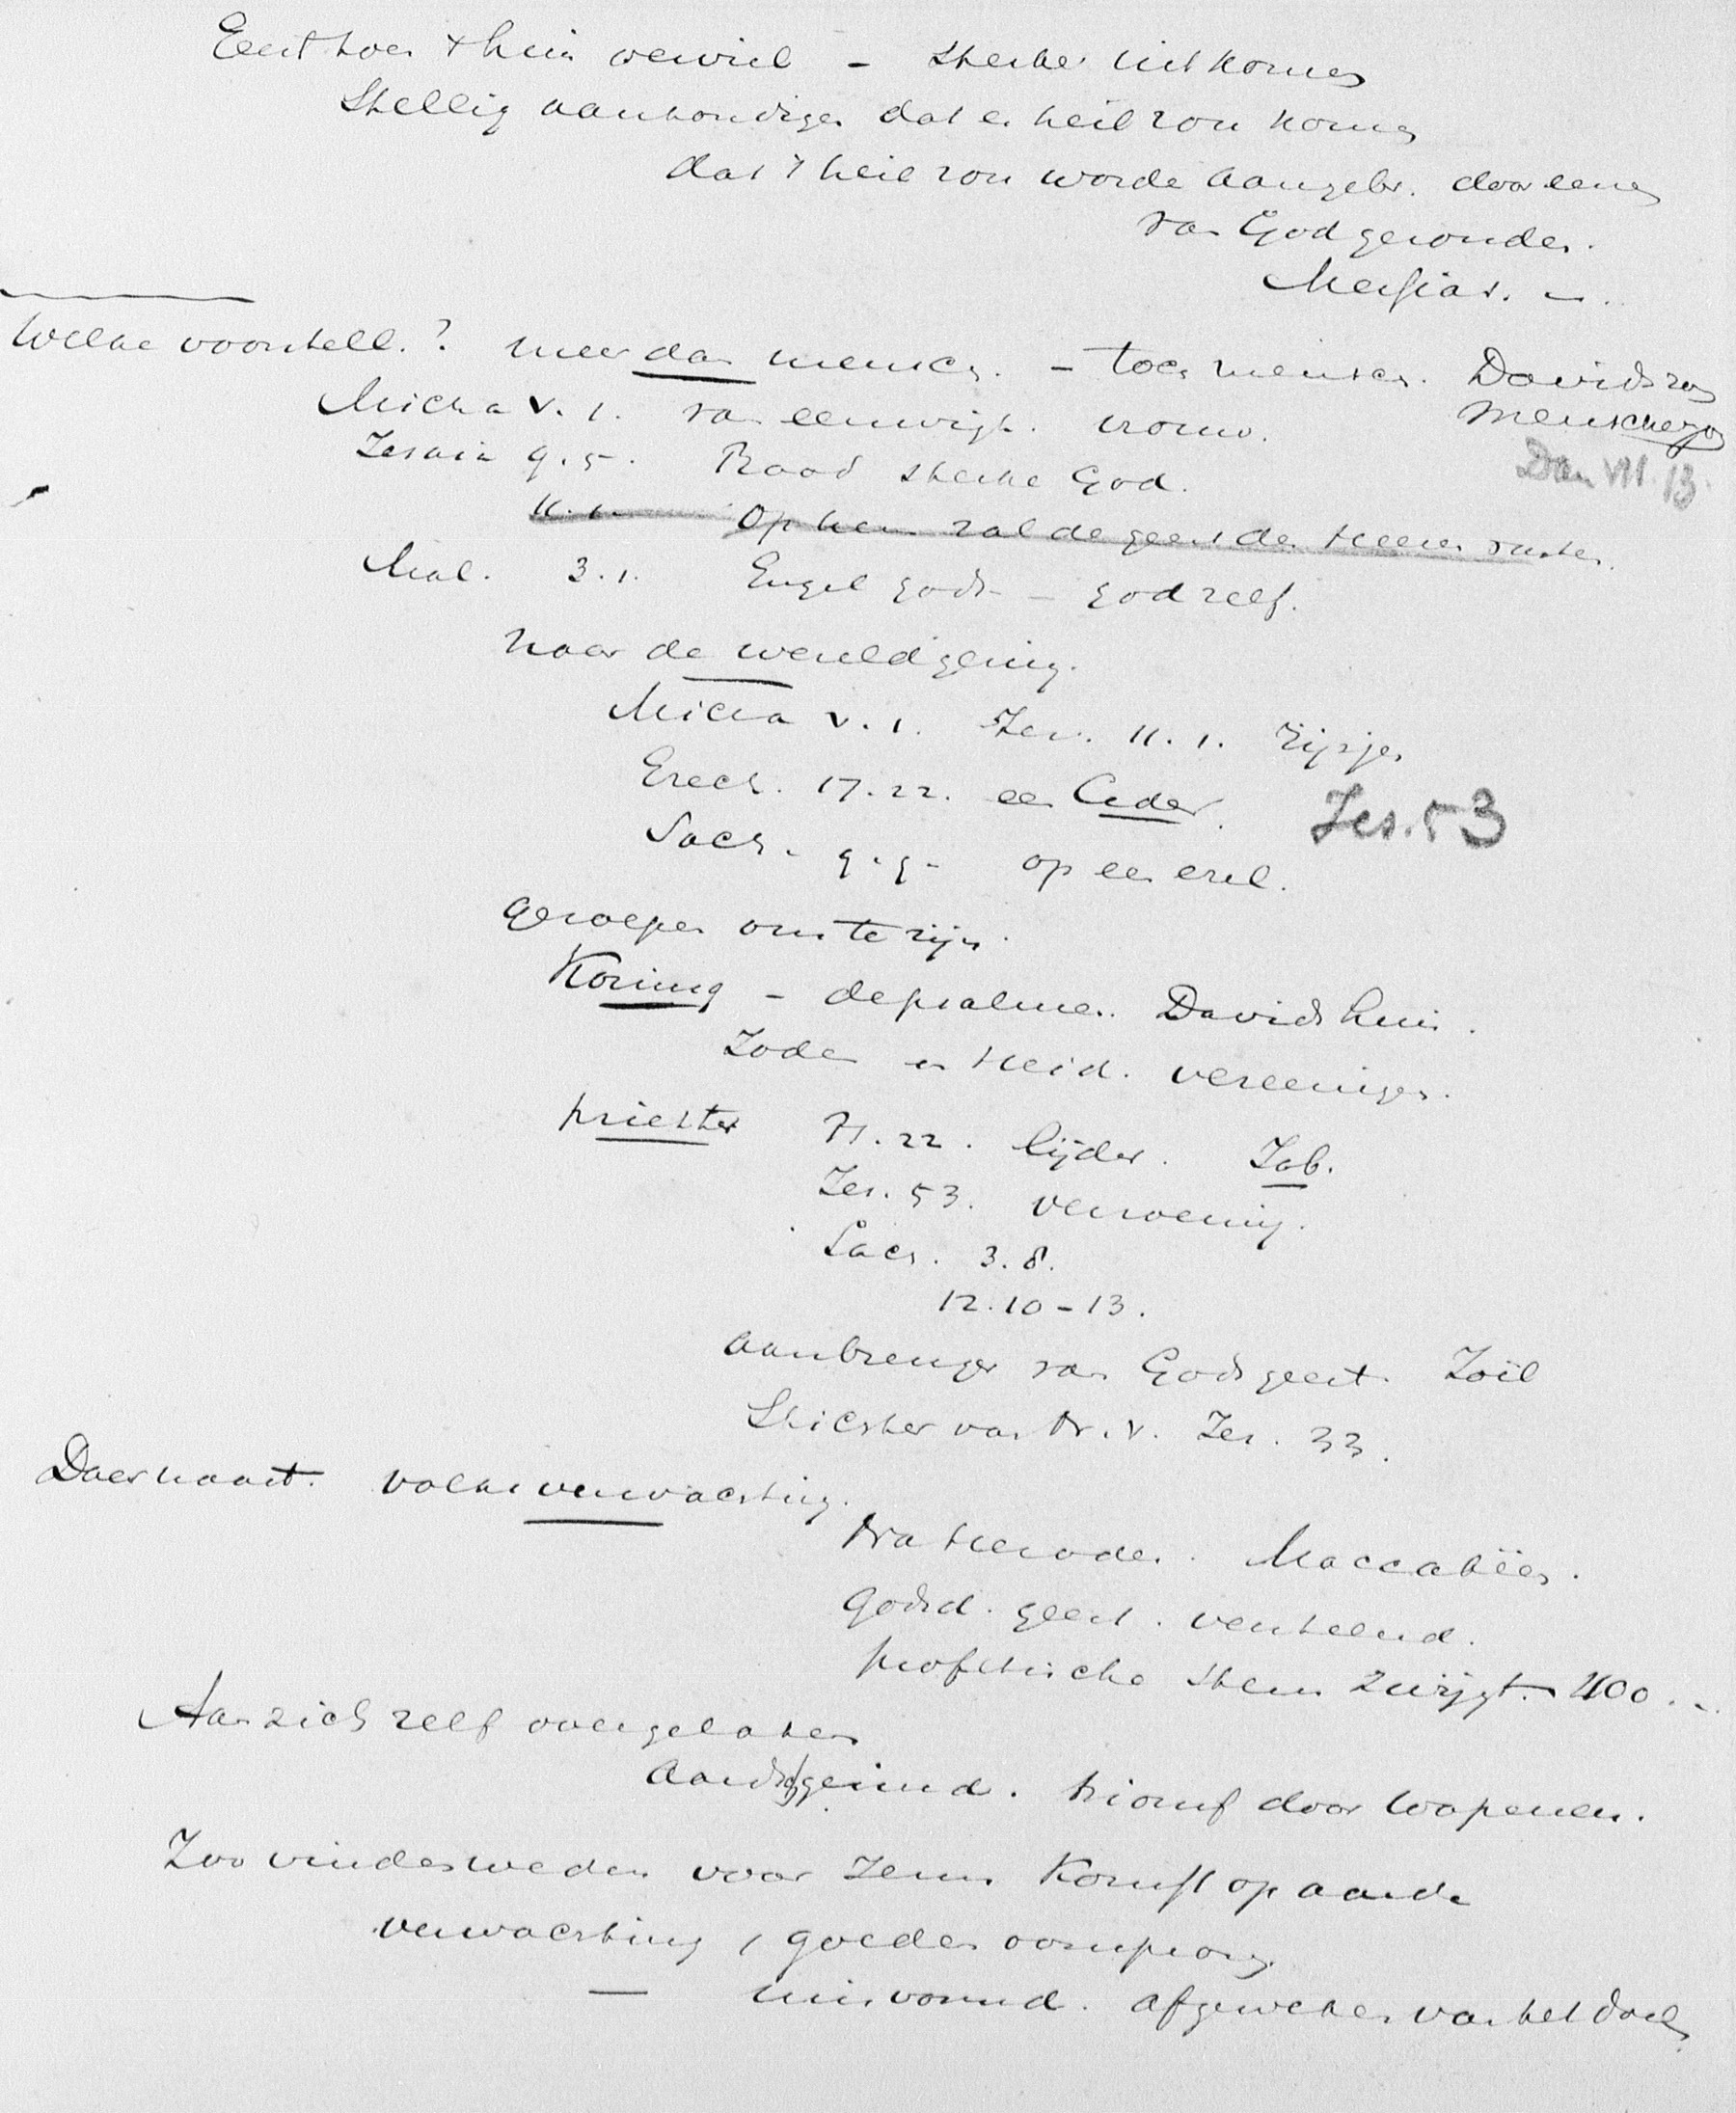 Eerst toen 't huis verviel - sterker uitkomen
Stellig aankondigen dat er heil zou komen
dat 't heil zou worden aangebr. door eenen
van God gezonden.
Messias. -.
Welke voorstell.? meer dan mensch. - toch mensch. Davids zoon
Micha V. 1. van eeuwigh. vrouw. Menschenzoon
Jesaia 9.5. Raad sterke God. Dan VII. 13.
11.1. Op hem zal de geest des Heeren rusten.
Mal. 3.1. Engel Gods - God zelf.
naar de wereld gering.
Micha V. 1. Jes. 11.1. rijsje
Ezech. 17.22. een Ceder. Jes. 53
Sach. 9.9. op een ezel.
Geroepen om te zijn.
Koning - de psalmen. Davids huis.
Joden en Heid. vereenigen.
priester Ps. 22. lijder. Job.
Jes. 53. verzoening.
Sach. 3.8.
12.10-13.
aanbrenger van Gods geest. Joël
Stichter van N.V. Jer. 33.
Daarnaast. volksverwachting.
Na Herodes. Maccabëen.
Godsd. geest. versteend.
profetische stem zwijgt. 400...
Aan zich zelf overgelaten
Aardsgezind. triomf door wapenen.
Zoo vinden we den voor Jezus Komst op aarde
verwachting, goeden oorsprong
- misvormd. afgeweken van het doel